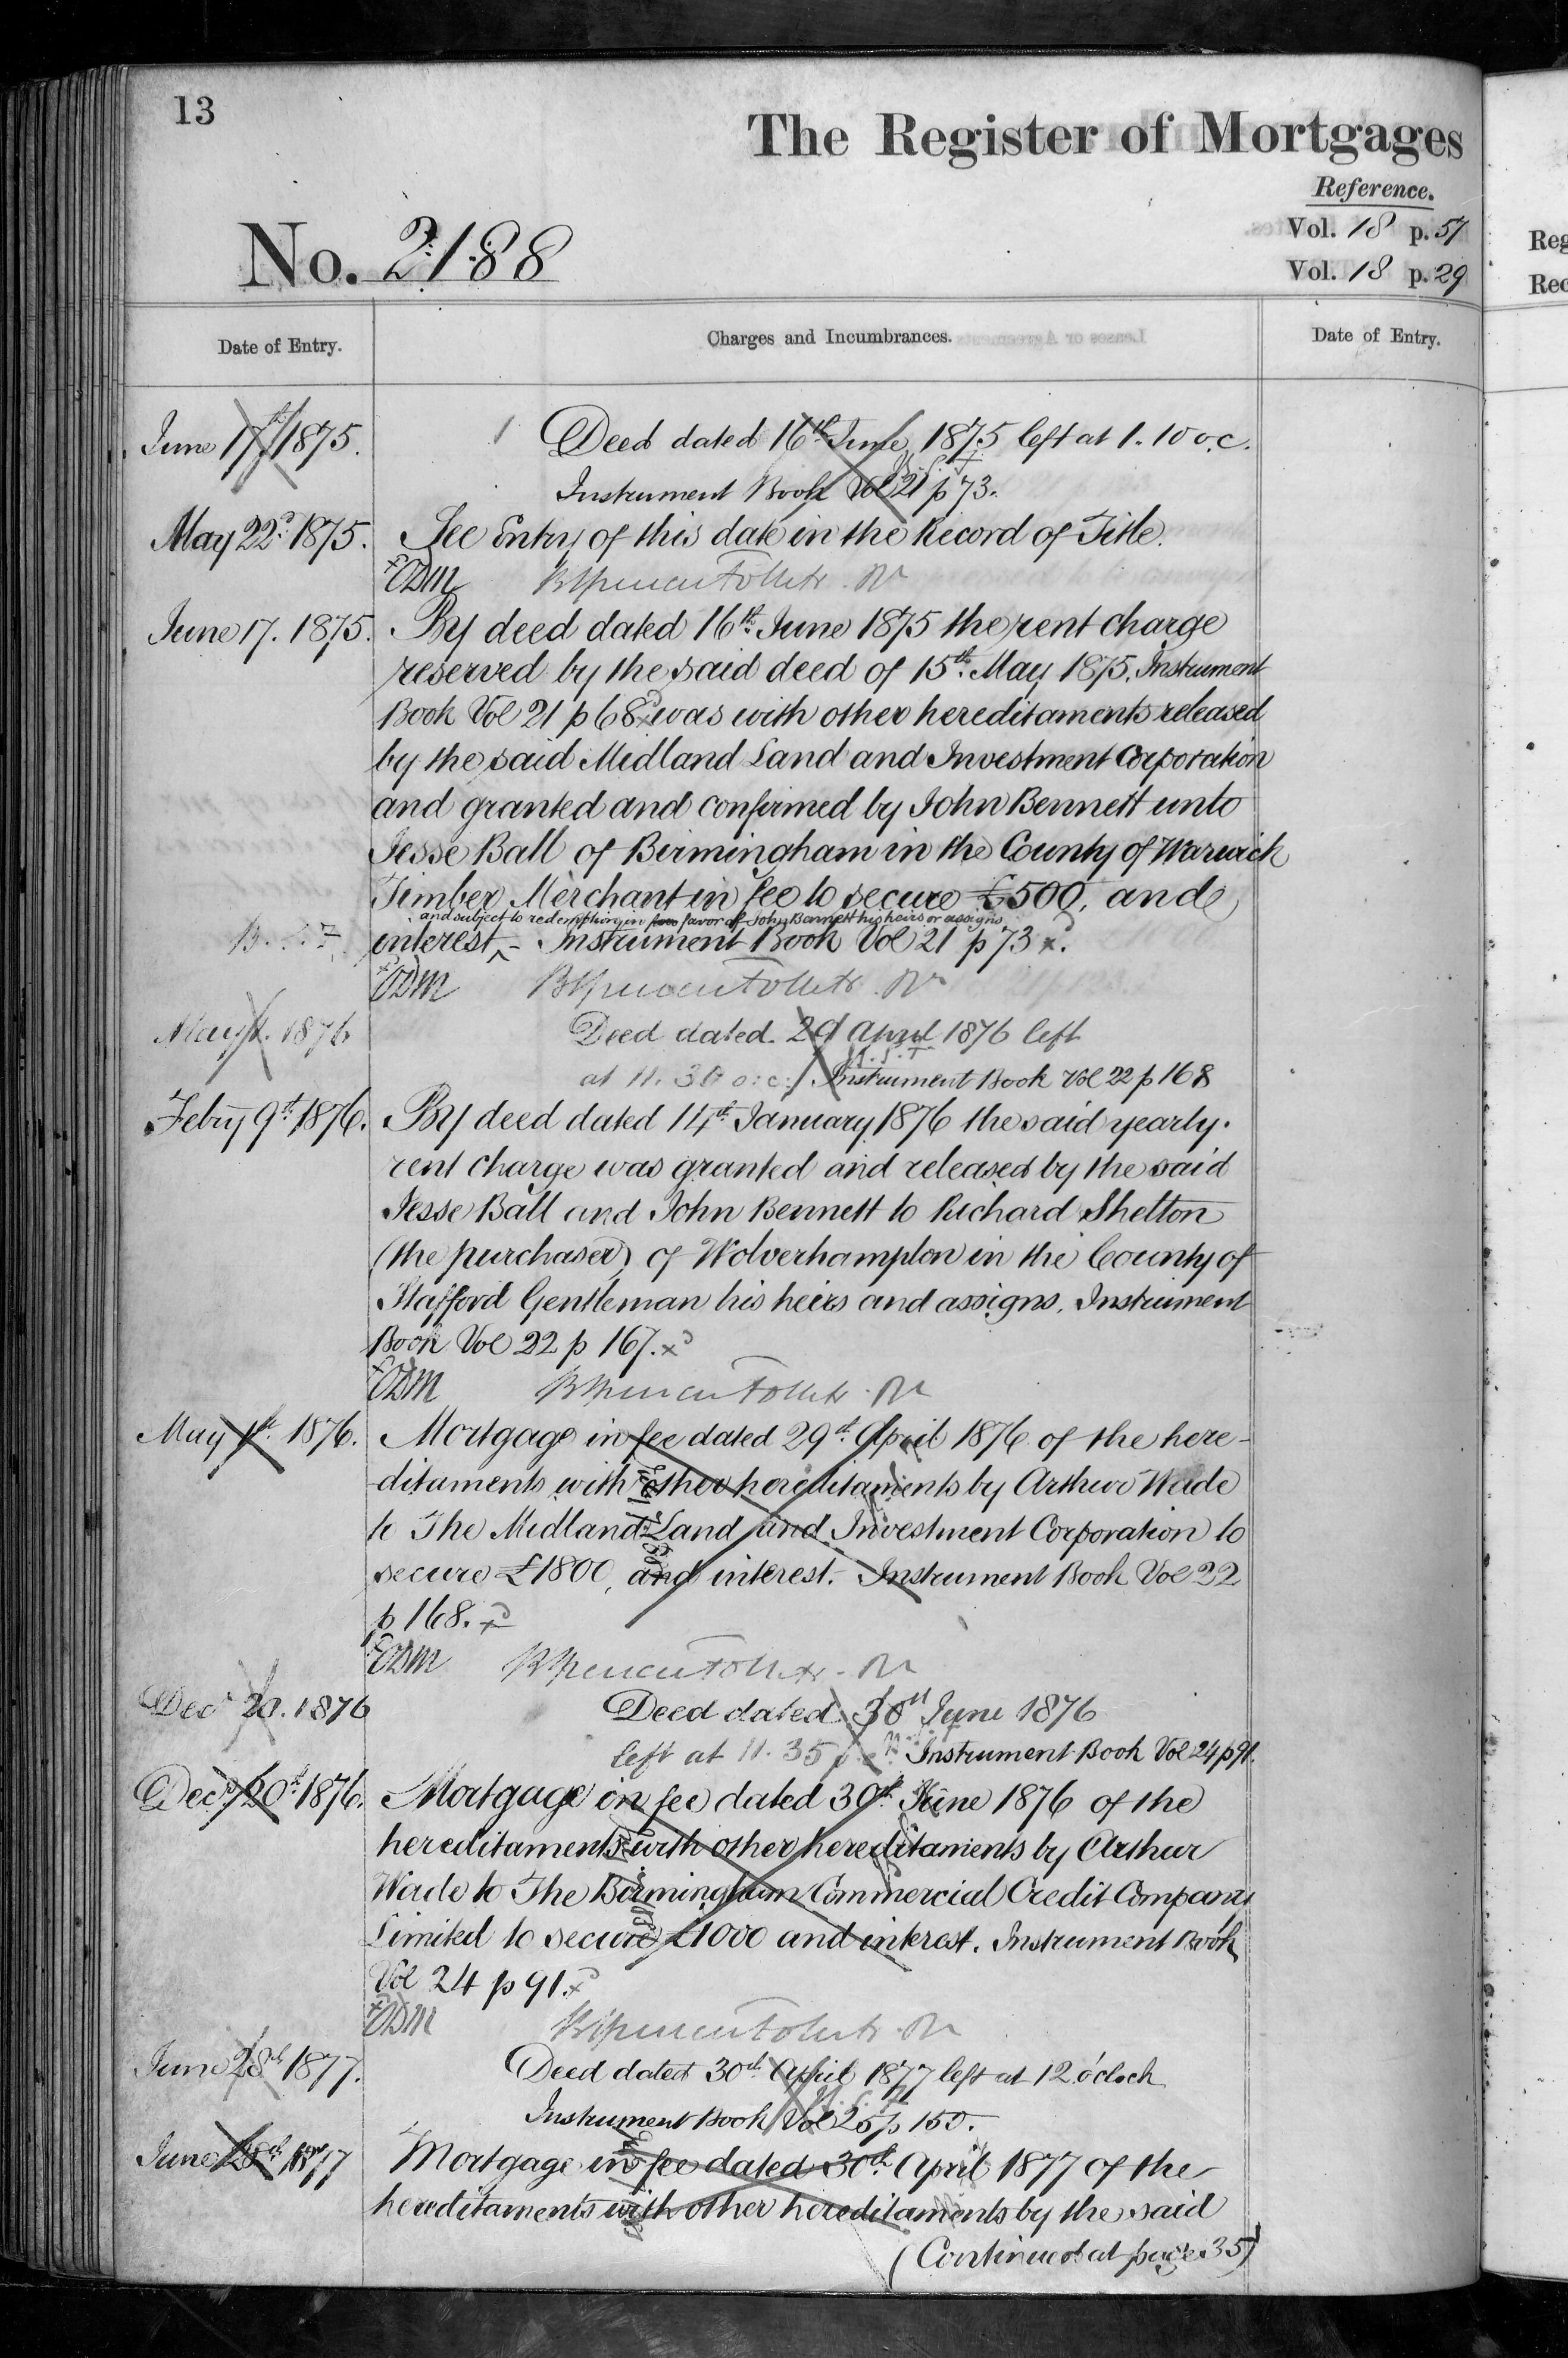 13
The Register of Mortgages
Reference.
No. 2188
Vol. 18 p. 57
Vol. 18 p. 29
Date of Entry.
Charges and Incumbrances.
Date of Entry.
June 17th 1875. 1 Deed dated 16th June 1875 left at 1.10 o.c.
Instrument Book Vol 21 p 73.
May 22d 1875. See Entry of this date in the Record of Title.
June 17. 1875. By deed dated 16th June 1875 the rent charge
reserved by the said deed of 15th May 1875. Instrument
Book Vol 21 p 68 was with other hereditaments released
by the said Midland Land and Investment Corporation
and granted and confirmed by John Bennett unto
Jesse Ball of Birmingham in the County of Warwick
Timber Merchant in fee to secure £500, and
and subject to redemption in favor of John Bennett his heirs or assigns
interest - Instrument Book Vol 21 p 73 x.
May 1. 1876 Deed dated 29 April 1876 left
at 11.30 o.c. Instrument Book Vol 22 p 168
Febry 9th 1876. By deed dated 14th January 1876 the said yearly
rent charge was granted and released by the said
Jesse Ball and John Bennett to Richard Shelton
(the purchaser) of Wolverhampton in the County of
Stafford Gentleman his heirs and assigns. Instrument
Book Vol 22 p 167. x
May 1st 1876. Mortgage in fee dated 29th April 1876 of the here-
-ditaments with other hereditaments by Arthur Wade
to The Midland Land and Investment Corporation to
secure £1800, and interest. Instrument Book Vol 22
p 168. x
Decr 20. 1876 Deed dated 30th June 1876
left at 11.35 Instrument Book Vol 24 p 91.
Decr 20th 1876. Mortgage in fee dated 30th June 1876 of the
hereditaments with other hereditaments by Arthur
Wade to The Birmingham Commercial Credit Company
Limited to secure £1000 and interest. Instrument Book
Vol 24 p 91. x
June 28th 1877. Deed dated 30th April 1877 left at 12 o'clock
Instrument Book Vol 25 p 150.
June 28th 1877 Mortgage in fee dated 30th April 1877 of the
hereditaments with other hereditaments by the said
(Continued at page 35)